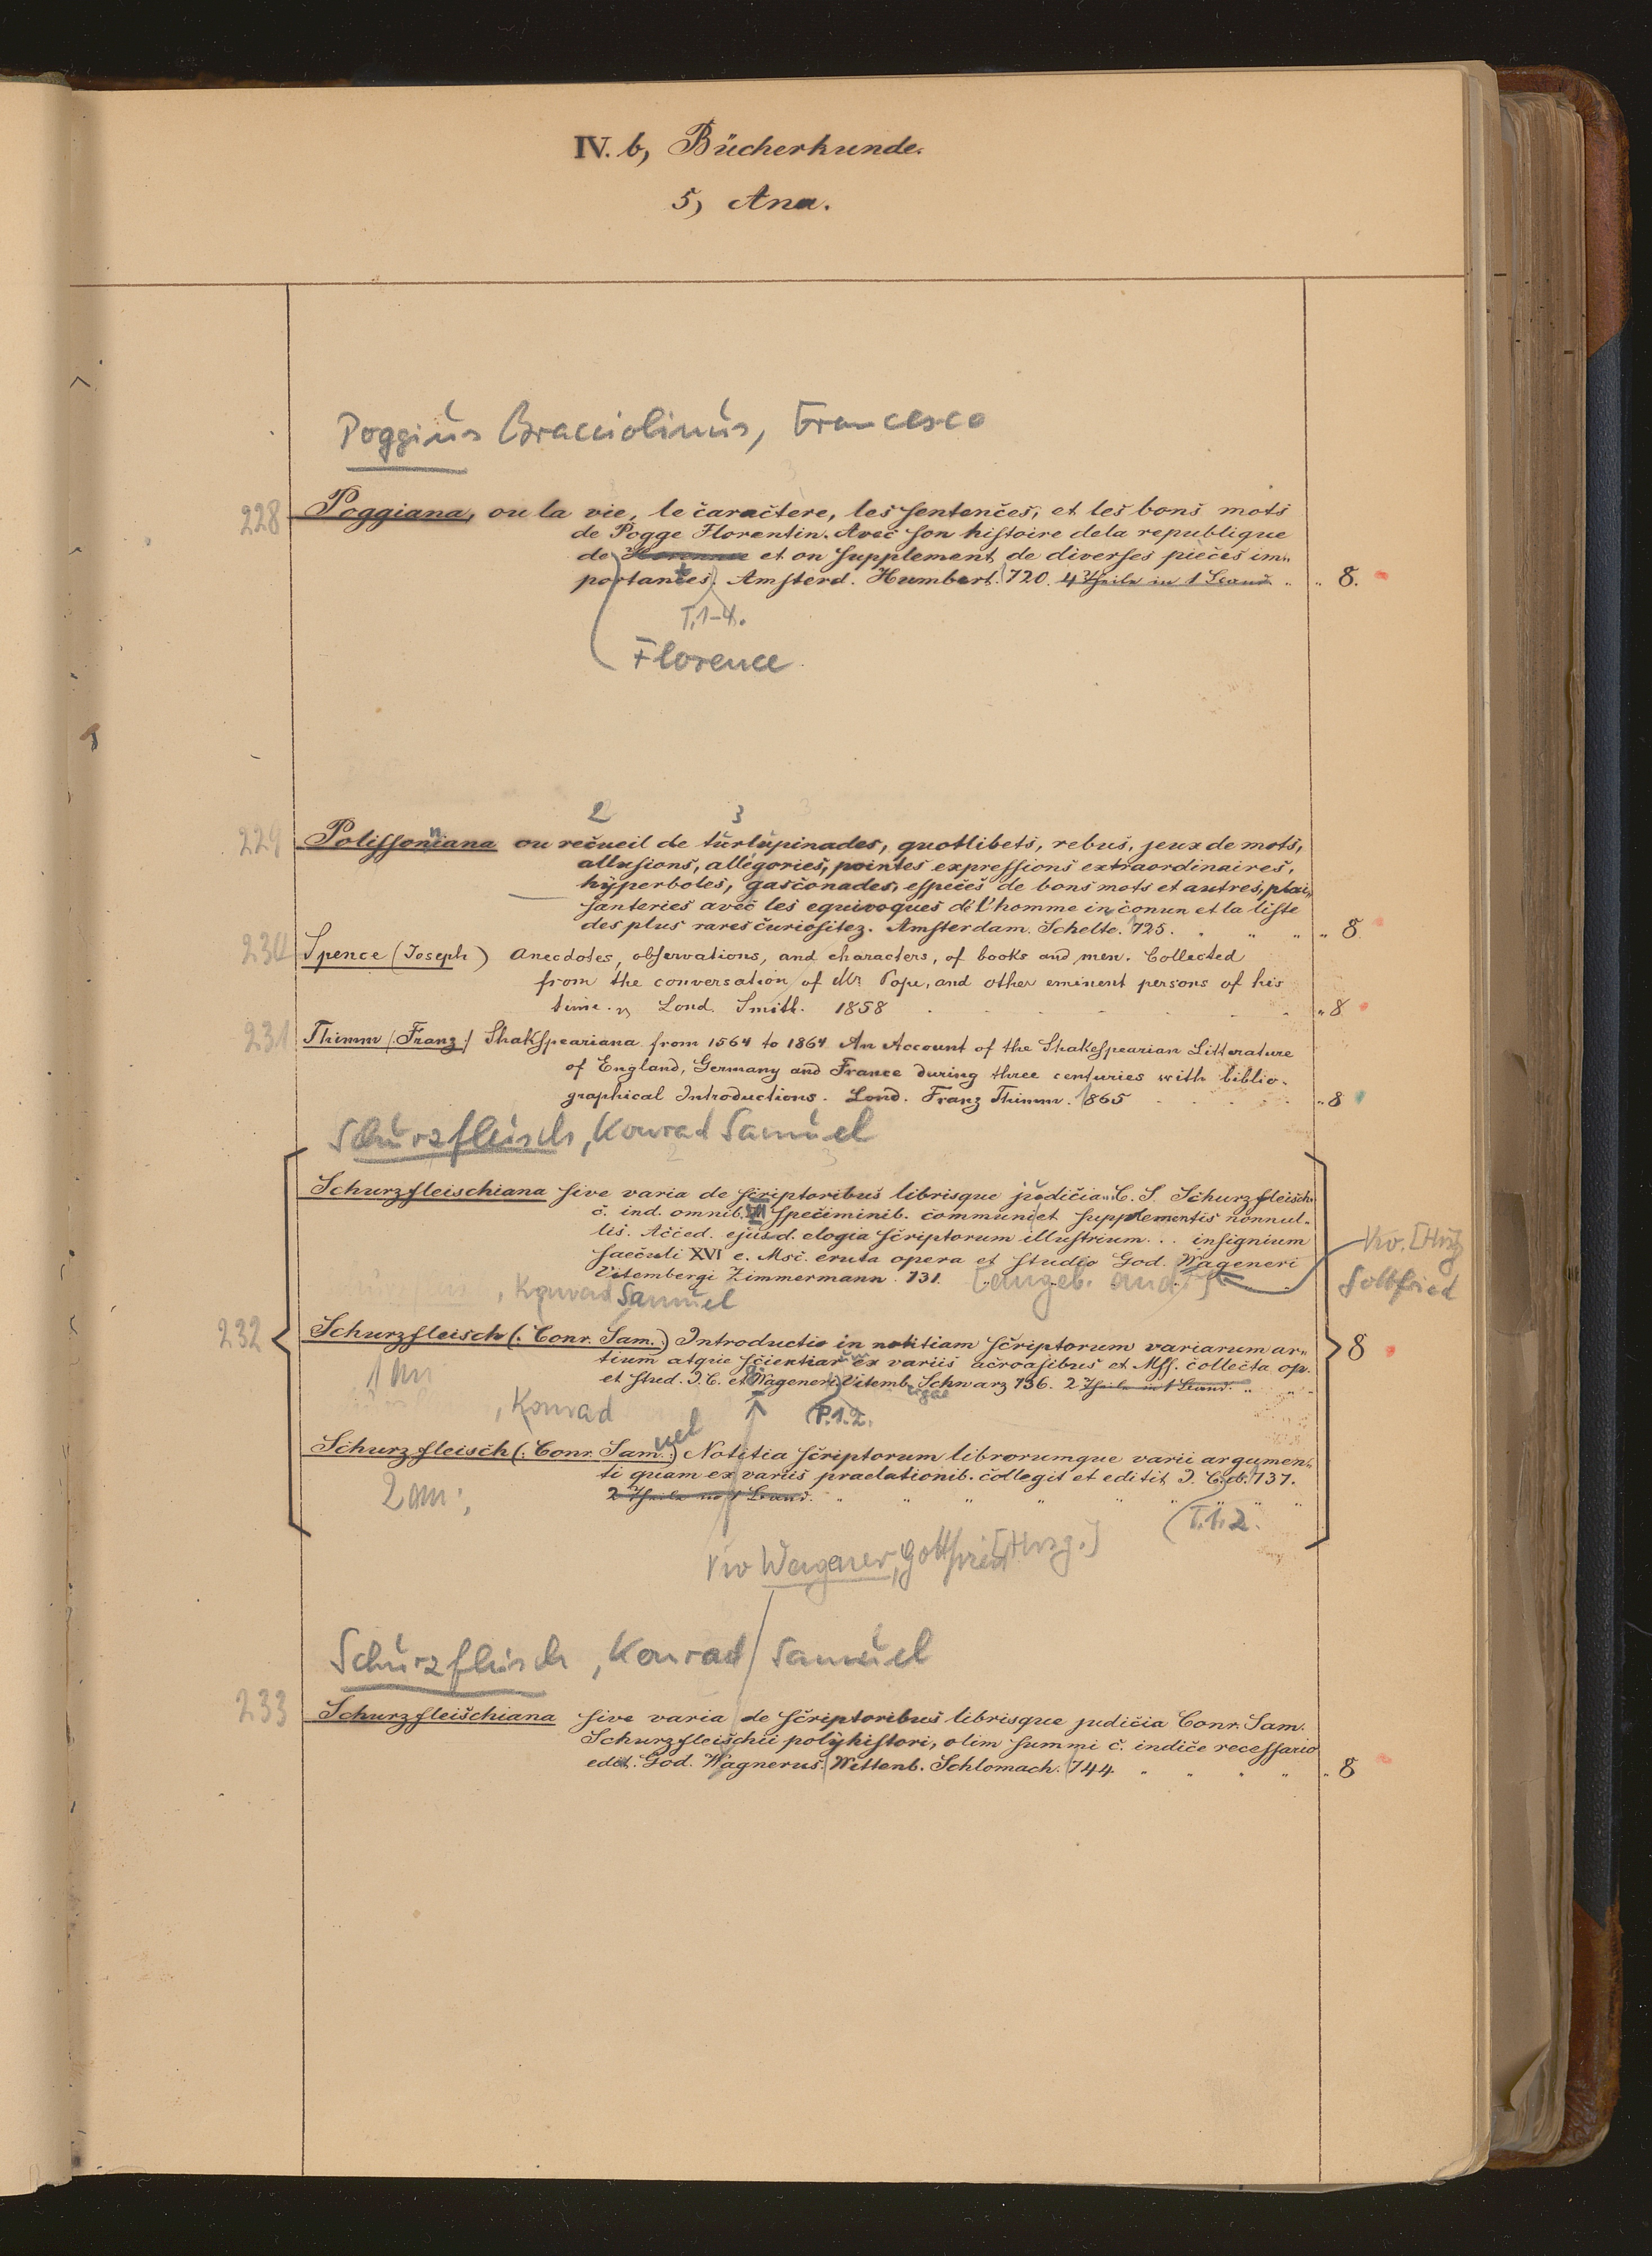 IV. b, Bücherkunde.
5, Ana.
Poggius Bracciolinus, Francesco
228 Poggiana, ou la vie, le caractere, les sentences, et les bons mots
de Pogge Florentin. Avec son histoire dela republique
de et on supplement de diverses pieces im-
portantes. Amsterd. Humbert. 720. 4 Theile in 1 Band. " " 8.
T. 1-4.
Florence
2 3
229 Polissonniana ou recueil de turlupinades, quotlibets, rebus, jeux de mots,
allusions, allegories, pointes expressions extraordinaires,
hyperboles, gasconades, especes de bons mots et autres, plai-
santeries avec les equivoques de l'homme inconun et la liste
des plus rares curiositez. Amsterdam. Schelte. 725. " " " " 8
230 Spence (Joseph) Anecdotes, observations, and characters, of books and men. Collected
from the conversation of Mr. Pope, and other eminent persons of his
time. Lond. Smith. 1858 " 8
231 Thimm /Franz/ Shakspeariana from 1564 to 1864. An Account of the Shakespearian Litterature
of England, Germany and France during three centuries with biblio-
graphical Introductions. Lond. Franz Thimm. 1865 " 8
Schurzfleisch, Konrad Samuel
Schurzfleischiana sive varia de scriptoribus librisque judicia C. S. Schurzfleisch.
c. ind. omnib. speciminib. communi et supplementis nonnul-
lis. Acced. ejusd. elogia scriptorum illustrium . . insignium
saeculi XVI e. Msc. eruta opera et studio God. Wageneri
Vitembergi Zimmermann. 731. [angeb. and:]
Vw. [Hrsg
Gottfried
, Konrad Samuel
232 Schurzfleisch (: Conr. Sam.) Introductio in notitiam scriptorum variarum ar-
tium atque scientiarum ex variis acroasibus et Mss. collecta op.
et stud. I. C. et Wageneri. Vitemb. Schwarz 736. 2 Theile in 1 Band. " " 8
1 an
P. 1. 2.
, Konrad
Schurzfleisch (: Conr. Samuel) Notitia scriptorum librorumque varii argumen-
ti quam ex variis praelationib. collegit et editit I. C. 737.
2 Theile in 1 Band. " " " " " " " "
2 an:
T. 1. 2.
Vw Wagener, Gottfried [Hrsg.]
Schurzfleisch, Konrad Samuel
233 Schurzfleischiana sive varia de scriptoribus librisque judicia Conr. Sam.
Schurzfleischii polyhistori, olim summi c. indice recessario
edit. God. Wagnerus. Wittenb. Schlomach. 744. " " " " " 8